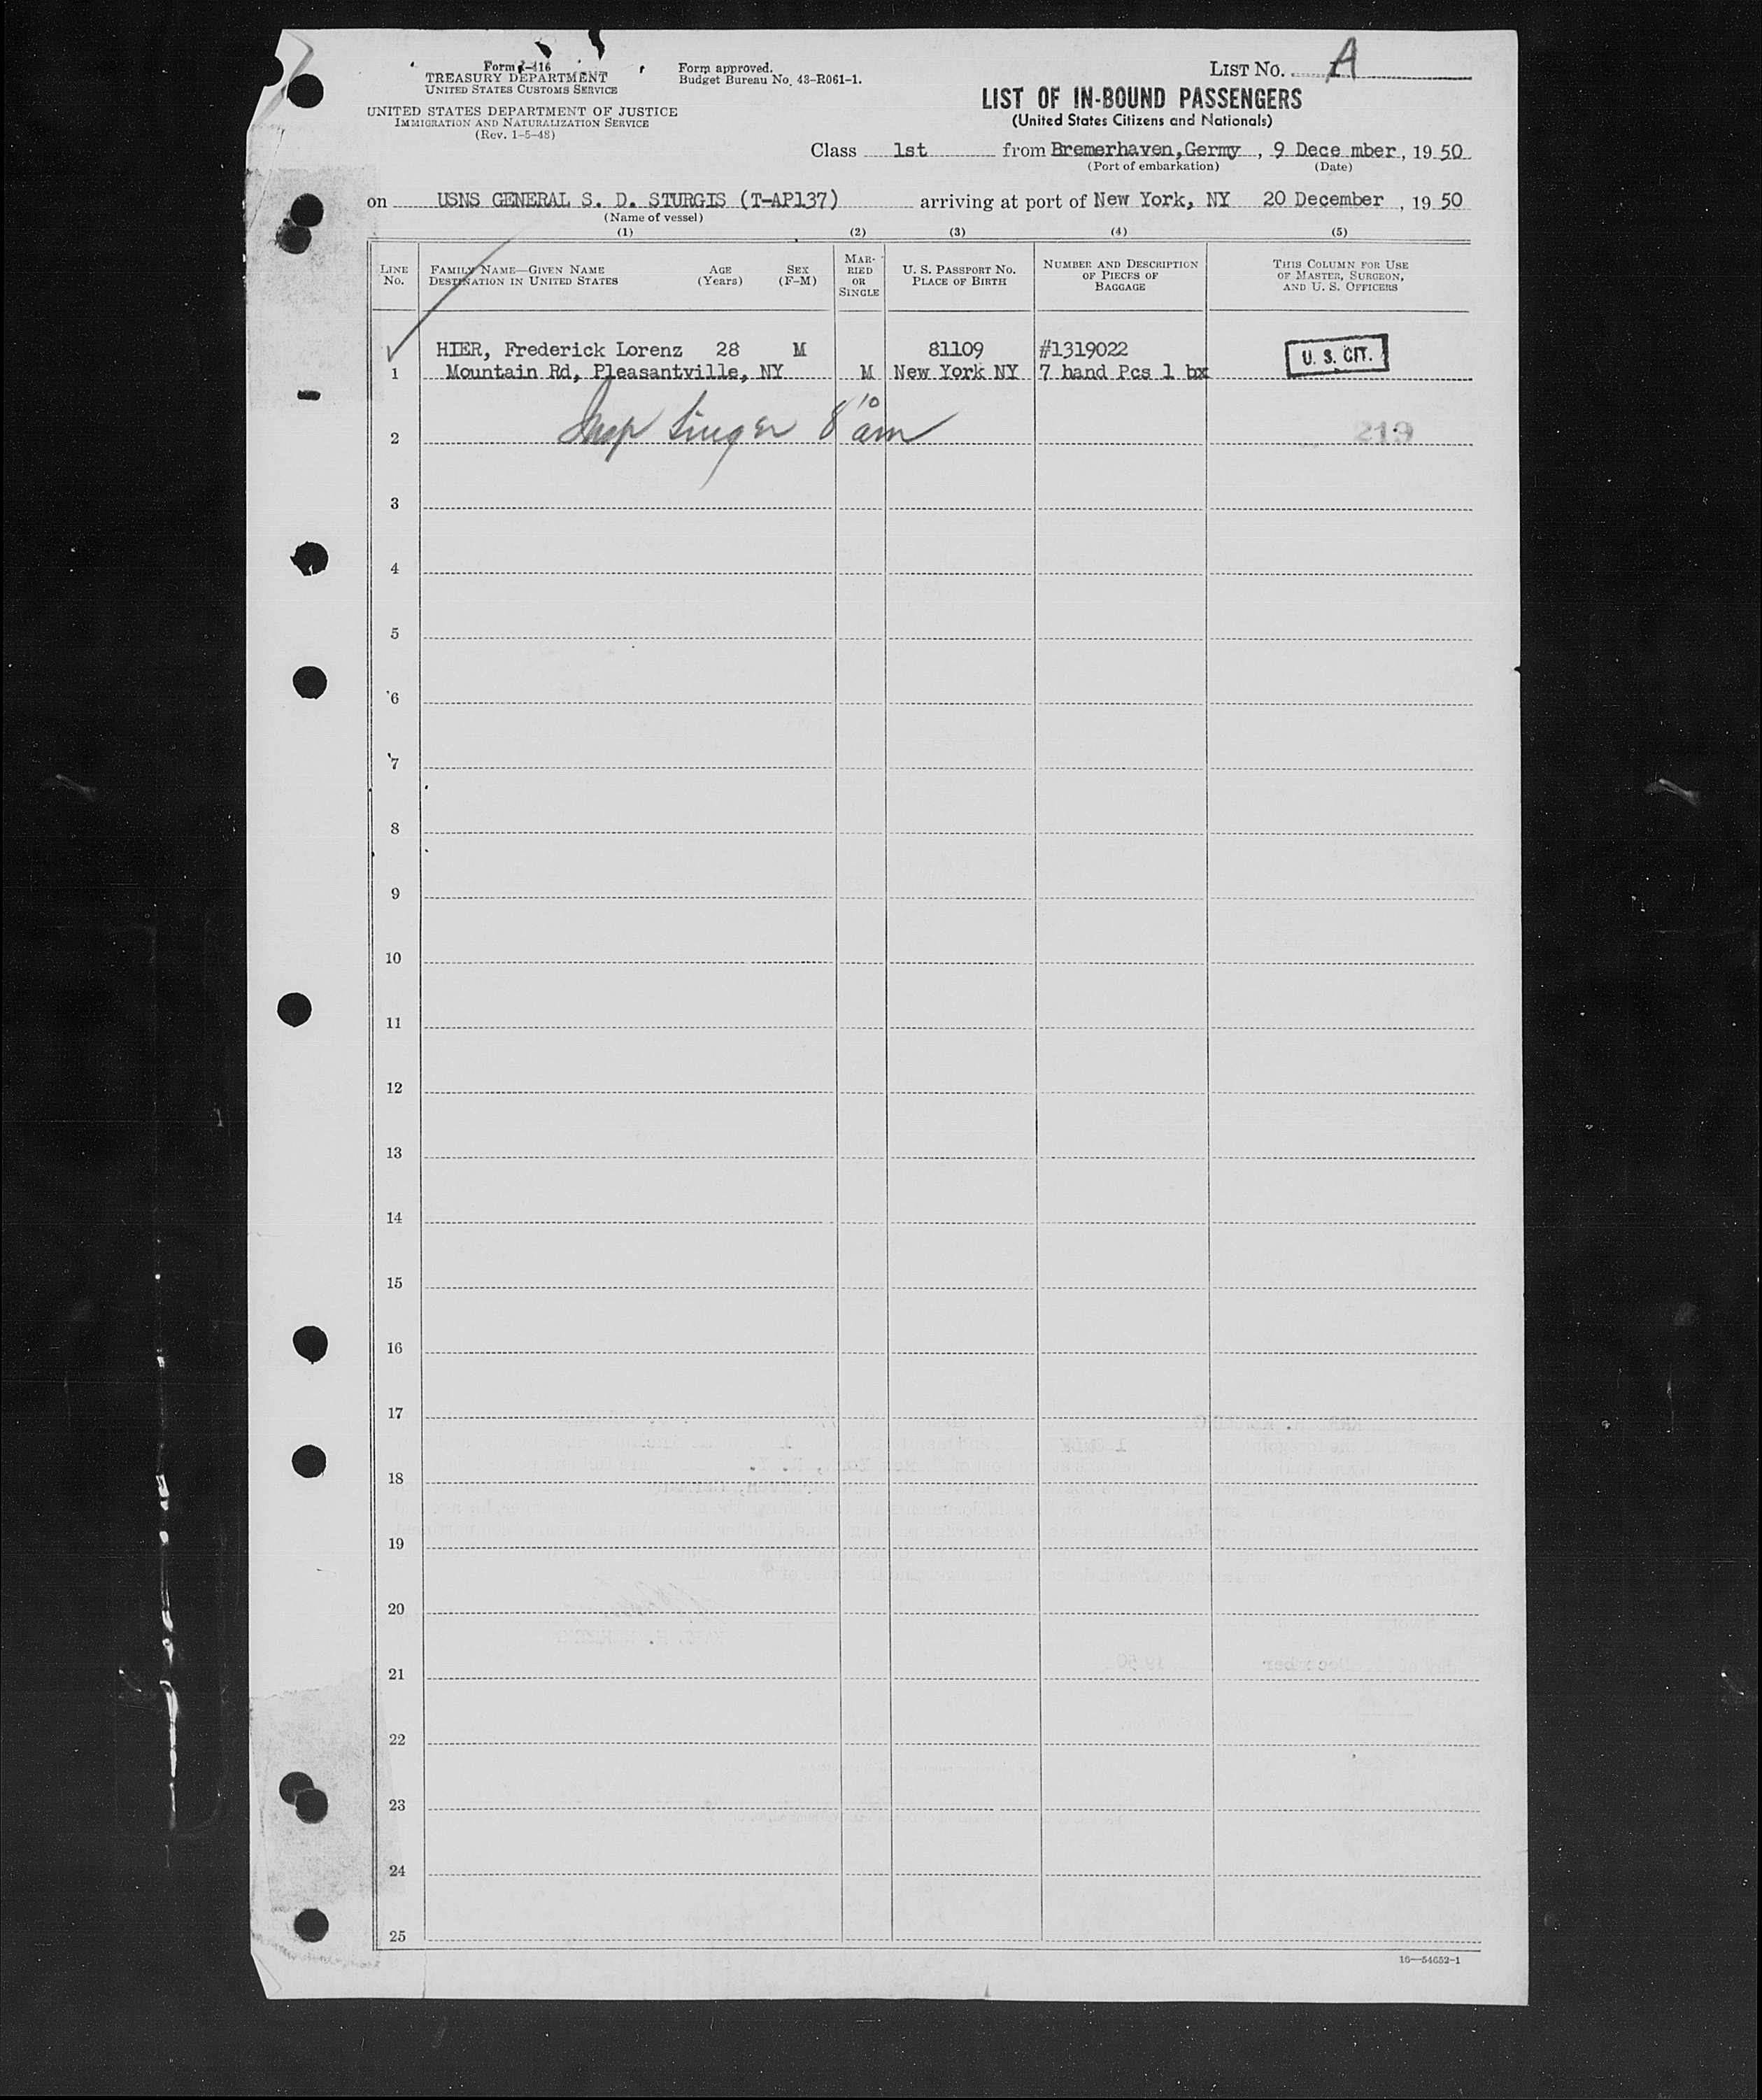 Form I-416
TREASURY DEPARTMENT
UNITED STATES CUSTOMS SERVICE
UNITED STATES DEPARTMENT OF JUSTICE
IMMIGRATION AND NATURALIZATION SERVICE
(Rev. 1-5-48)
Form approved.
Budget Bureau No. 43-R061-1.
LIST NO. A
LIST OF IN-BOUND PASSENGERS
(United States Citizens and Nationals)
Class 1st from Bremerhaven,Germy , 9 Dece mber , 19 50
(Port of embarkation) (Date)
on USNS GENERAL S. D. STURGIS (T-AP137) arriving at port of New York, NY 20 December , 19 50
(Name of vessel)
(1) (2) (3) (4) (5)
LINE No. FAMILY NAME—GIVEN NAME DESTINATION IN UNITED STATES AGE (Years) SEX (F-M) MARRIED OR SINGLE U. S. PASSPORT NO. PLACE OF BIRTH NUMBER AND DESCRIPTION OF PIECES OF BAGGAGE THIS COLUMN FOR USE OF MASTER, SURGEON, AND U. S. OFFICERS
HIER, Frederick Lorenz 28 M 81109 #1319022 U. S. CIT.
1 Mountain Rd, Pleasantville, NY M New York NY 7 hand Pcs 1 bx
Insp Singer 8 10 am
2 219
3
4
5
6
7
8
9
10
11
12
13
14
15
16
17
18
19
20
21
22
23
24
25
16—54652-1